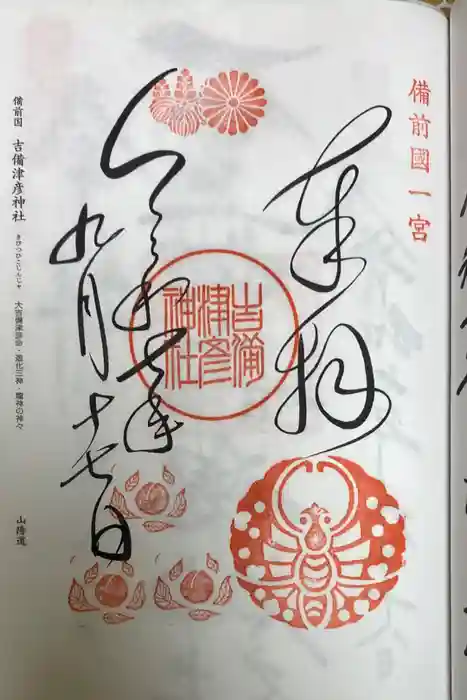 備前國一宮
奉拝
吉備
津彦
神社
令和七年
九月十七日
備前国 吉備津彦神社
きびつひこじんじゃ
大吉備津彦命・造化三神・龍神の神々
山陽道